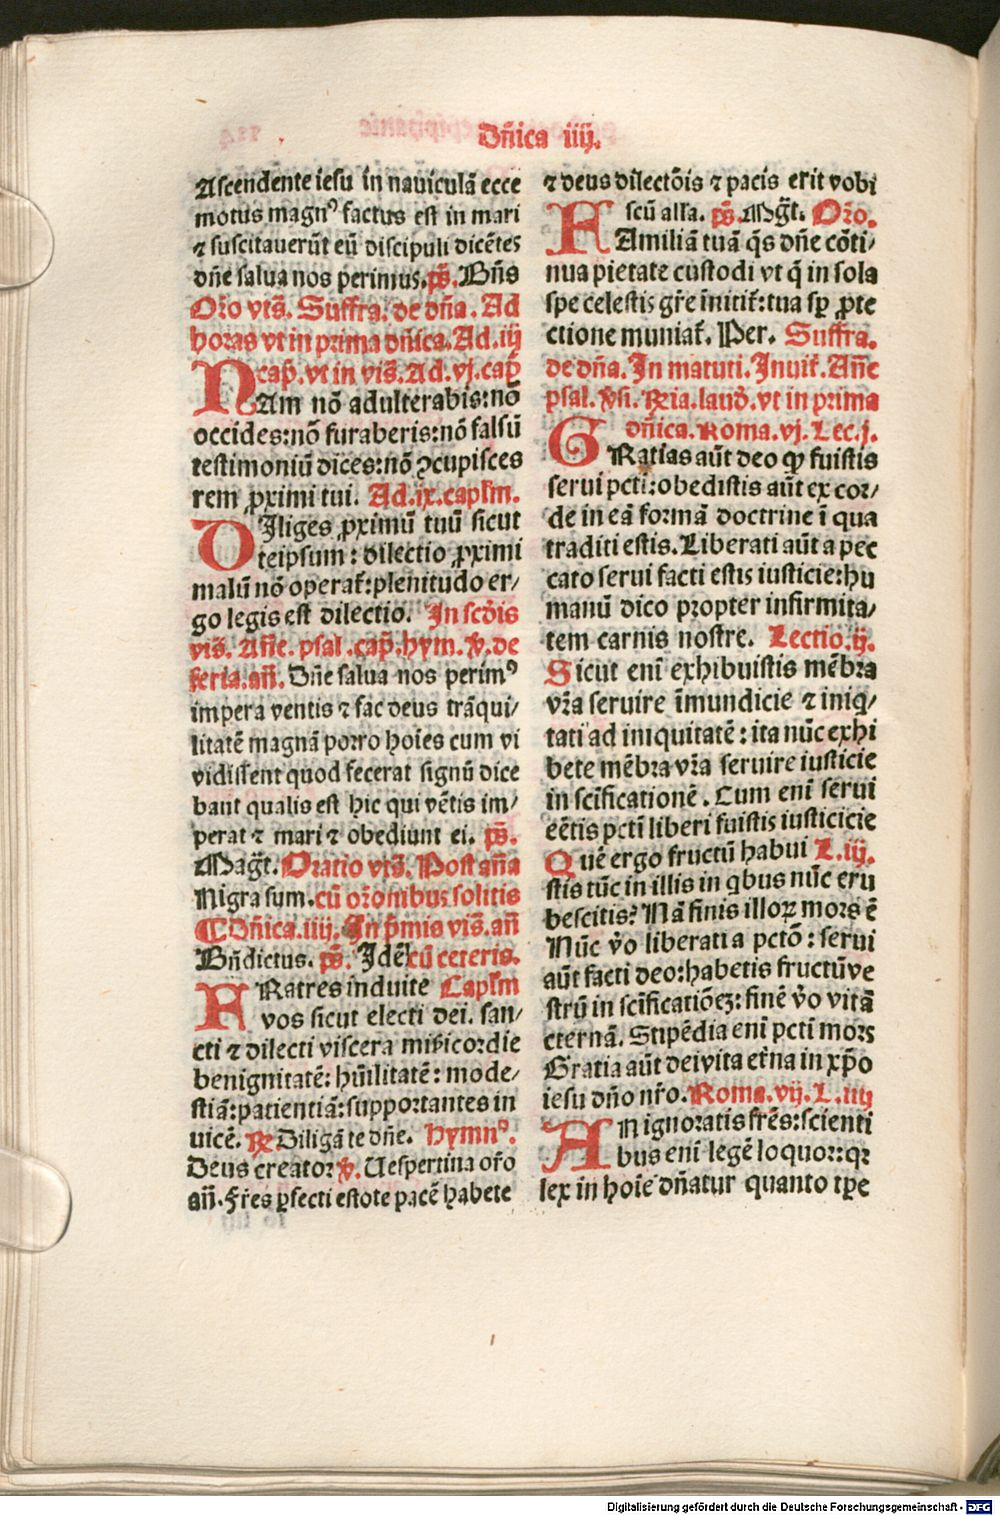 Dñica iiij.
Ascendente iesu in nauiculã ecce
motus magnꝰ factus est in mari
⁊ suscitauerũt eũ discipuli dicẽtes
dñe salua nos perimus. p̃s. Bñs
Or̃o vts̃. Suffra. de dña. Ad
horas vt in prima dñica. Ad. iij
cap̃. vt in vis̃. Ad. vj. cap̃
NAm nõ adulterabis: nõ
occides: nõ furaberis: nõ falsũ
testimoniũ dices: nõ ꝯcupisces
rem ꝓximi tui. Ad. ix. capl̃m.
DIliges ꝓximũ tuũ sicut
teipsum: dilectio ꝓximi
malũ nõ operat̃: plenitudo er⸗
go legis est dilectio. In scd̃is
vis̃. Añe. psal. cap̃. hym. v̓. de
feria. añ. Dñe salua nos perimꝰ
impera ventis ⁊ fac deus trãqui⸗
litatẽ magnã porro hoĩes cum vi
vidissent quod fecerat signũ dice
bant qualis est hic qui vẽtis im⸗
perat ⁊ mari ⁊ obediunt ei. p̃s.
Mag̃t. Oratio vts̃. Post aña
Nigra sum. cũ or̃onibus solitis
¶ Dñica. iiij. In p̃mis vis̃. añ
Bñdictus. p̃s. Idẽ cũ ceteris.
FRatres induite Capl̃m
vos sicut electi dei. san⸗
cti ⁊ dilecti viscera mĩsericordie
benignitatẽ: hũilitatẽ: mode⸗
stiã: patientiã: supportantes in
uicẽ. ℞ Diligã te dñe. Hymnꝰ.
Deus creator v̓. Uespertina or̃o
añ. Fr̃es ꝑfecti estote pacẽ habete
⁊ deus dilectõis ⁊ pacis erit vobi
scũ alĩa. p̃s. Mag̃t. Or̃o.
FAmiliã tuã q̃s dñe cõti⸗
nua pietate custodi vt q̃ in sola
spe celestis gr̃e ĩnitit̃: tua sꝑ ꝓte
ctione muniat̃. Per. Suffra.
de dña. In matuti. Inuit̃. Añe
psal. v̓si. ℞ia. laud̃. vt in prima
dñica. Roma. vj. Lec. j.
GRatias aũt deo ꝙ fuistis
serui pcti: obedistis aũt ex cor⸗
de in eã formã doctrine ĩ qua
traditi estis. Liberati aũt a pec
cato serui facti estis iusticie: hu
manũ dico propter infirmita⸗
tem carnis nostre. Lectio. ij.
Sicut enĩ exhibuistis mẽbra
vr̃a seruire ĩmundicie ⁊ iniq̃⸗
tati ad iniquitatẽ: ita nũc exhi
bete mẽbra vr̃a seruire iusticie
in scĩficationẽ. Cum enĩ serui
eẽtis pctĩ liberi fuistis iusticicie
Quẽ ergo fructũ habui L. iij.
stis tũc in illis in qbus nũc eru
bescitis? Nã finis illoꝝ mors ẽ
Nũc v̓o liberati a pctõ: serui
aũt facti deo: habetis fructũ ve
strũ in scĩficatiõeꝫ: finẽ v̓o vitã
eternã. Stipẽdia enĩ pctĩ mors
Gratia aũt dei vita et̃na in xp̃o
iesu dño nr̃o. Roma. vij. L. iiij
AN ignoratis fr̃es: scienti
bus enĩ legẽ loquor: qꝛ
lex in hoĩe dñatur quanto tp̃e
Digitalisierung gefördert durch die Deutsche Forschungsgemeinschaft - DFG